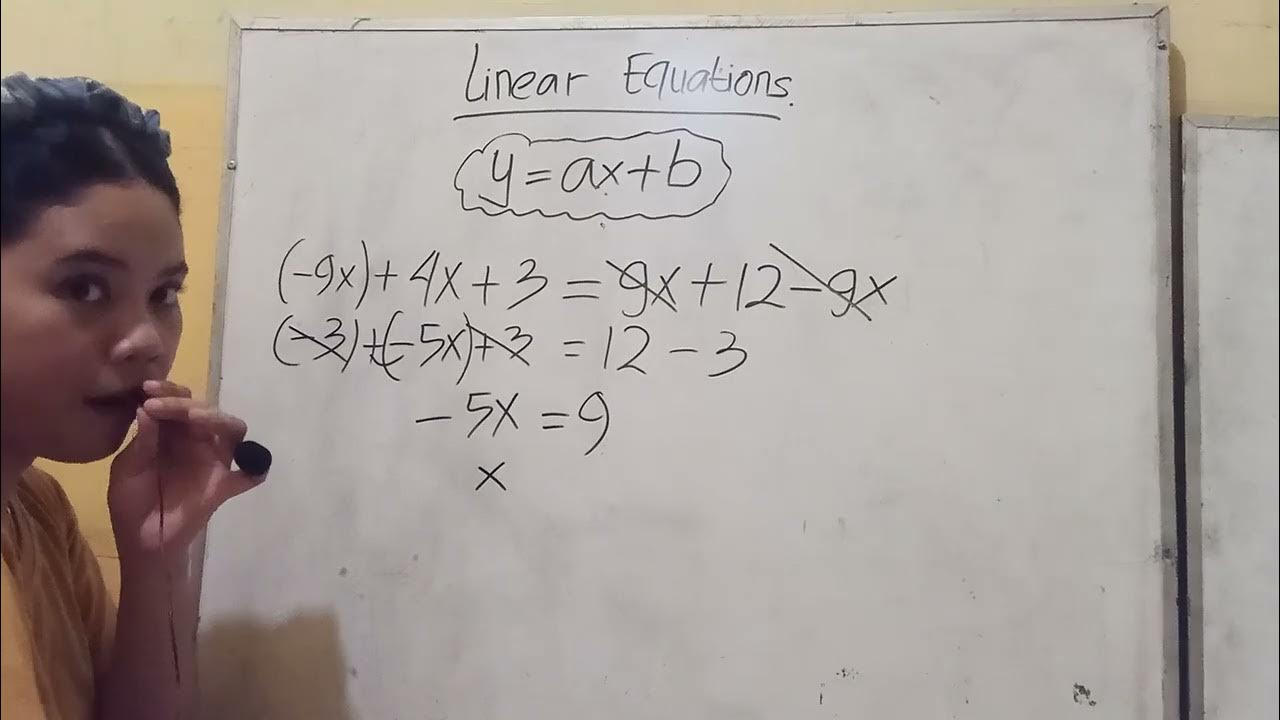 Linear Equations.
y = ax + b
(-9x) + 4x + 3 = 9x + 12 - 9x
(-3) + (-5x) + 3 = 12 - 3
- 5x = 9
x